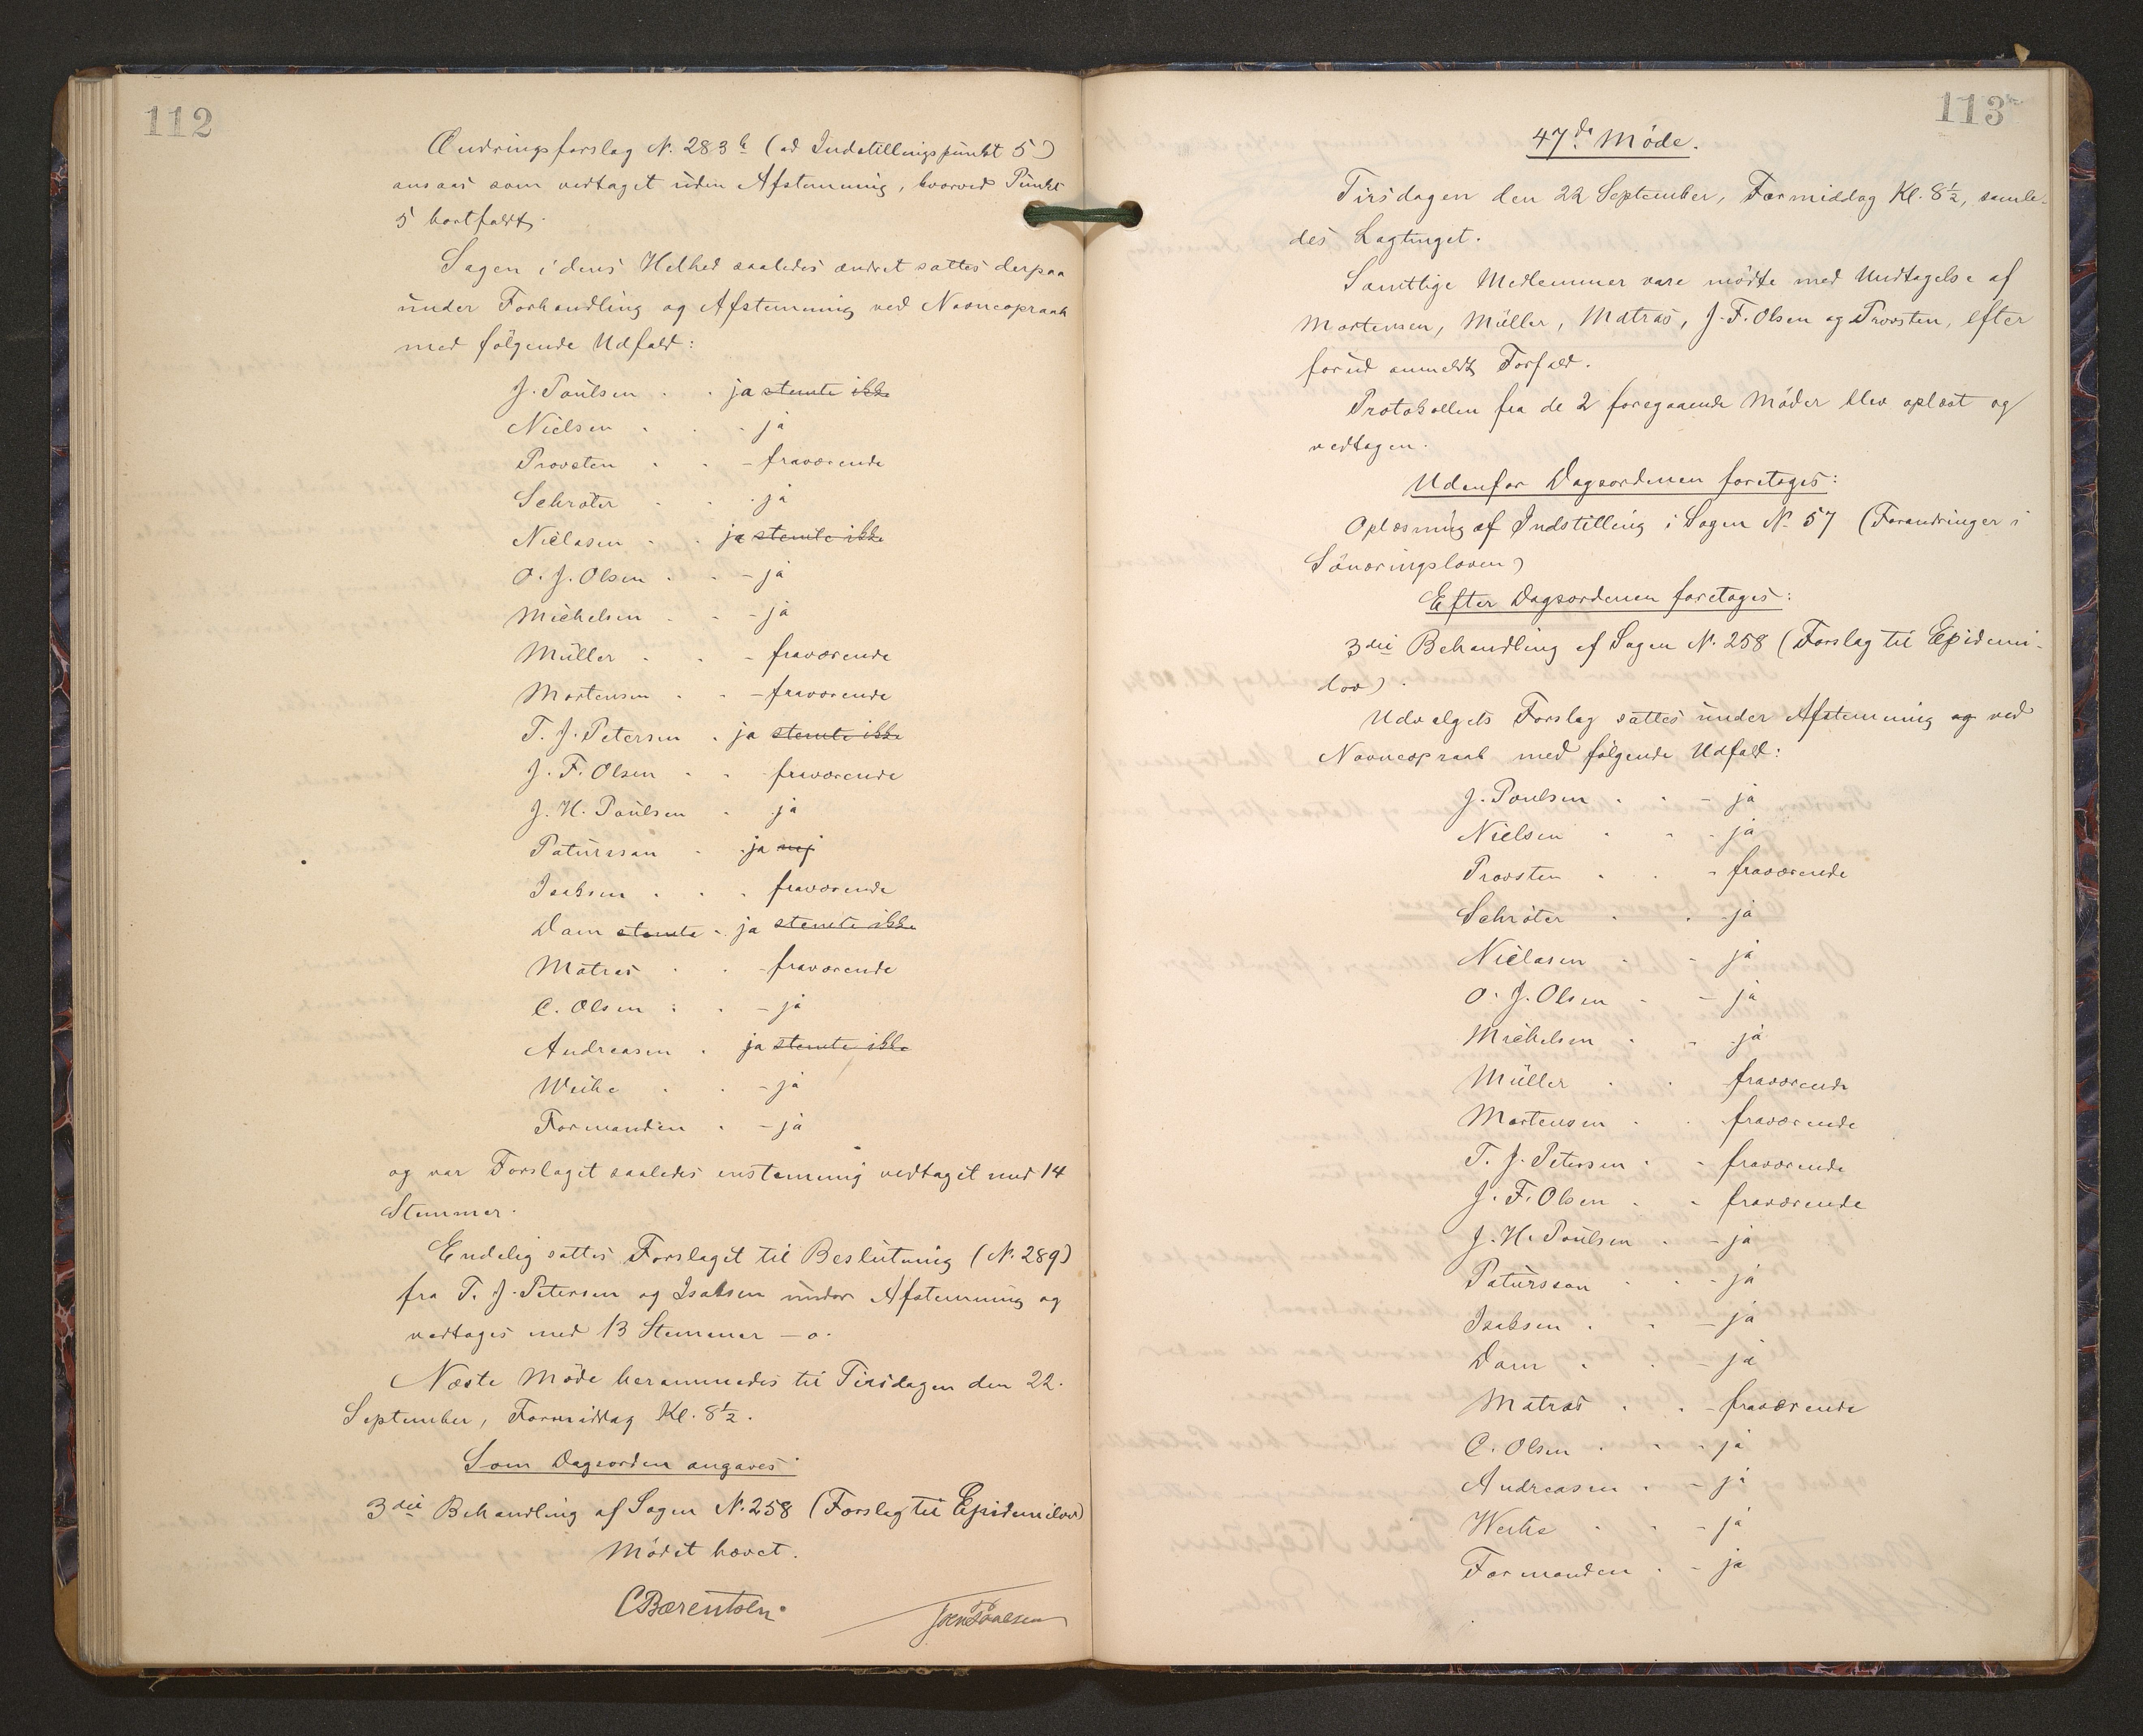 112
Ændringsforslag N. 283 b (ad Indstillingspunkt 5)
ansaas som vedtaget uden Afstemning, hvorved Punkt
5 bortfaldt.
Sagen i dens Helhed saaledes ændret sattes derpaa
under Forhandling og Afstemning ved Navneopraab
med følgende Udfald:
J. Poulsen . . ja stemte ikke
Nielsen . . - ja
Provsten . . - fraværende
Schrøter . . . ja
Niclasen . . ja stemte ikke
O. J. Olsen . . - ja
Michelsen . . - ja
Müller . . - fraværende
Mortensen . . - fraværende
T. J. Petersen . ja stemte ikke
J. F. Olsen . . - fraværende
J. H. Poulsen . ja
Patursson . . ja nej
Isaksen . . . fraværende
Dam stemte . ja stemte ikke
Matras . . - fraværende
C. Olsen . . - ja
Andreasen . ja stemte ikke
Weihe . . - ja
Formanden . - ja
og var Forslaget saaledes enstemmig vedtaget med 14
Stemmer.
Endelig sattes Forslaget til Beslutning (N. 289)
fra T. J. Petersen og Isaksen under Afstemning og
vedtoges med 13 Stemmer - 0.
Næste Møde berammedes til Tirsdagen den 22.
September, Formiddag Kl. 8½.
Som Dagsorden angaves:
3die Behandling af Sagen N. 258 (Forslag til Epidemilov)
Mødet hævet.
C Bærentsen.
Joen Poulsen
113
47de Møde.
Tirsdagen den 22 September, Formiddag Kl. 8½, samle-
des Lagtinget.
Samtlige Medlemmer vare mødte med Undtagelse af
Mortensen, Müller, Matras, J. F. Olsen og Provsten, efter
forud anmeldt Forfald.
Protokollen fra de 2 foregaaende Møder blev oplæst og
vedtagen.
Udenfor Dagsordenen foretoges:
Oplæsning af Indstilling i Sagen N. 57 (Forandringer i
Sónæringsloven)
Efter Dagsordenen foretoges:
3die Behandling af Sagen N. 258 (Forslag til Epidemi-
lov).
Udvalgets Forslag sattes under Afstemning og ved
Navneopraab med følgende Udfald:
J. Poulsen . . - ja
Nielsen . . - ja
Provsten . . - fraværende
Schrøter . . - ja
Niclasen . - ja
O. J. Olsen - - ja
Michelsen . - ja
Müller . . fraværende
Mortensen . . fraværende
T. J. Petersen . - fraværende
J. F. Olsen . - fraværende
J. H. Poulsen . - ja
Patursson . . - ja
Isaksen . . - ja
Dam . . - ja
Matras . . - fraværende
C. Olsen . . - ja
Andreasen . - ja
Weihe . . - ja
Formanden . - ja